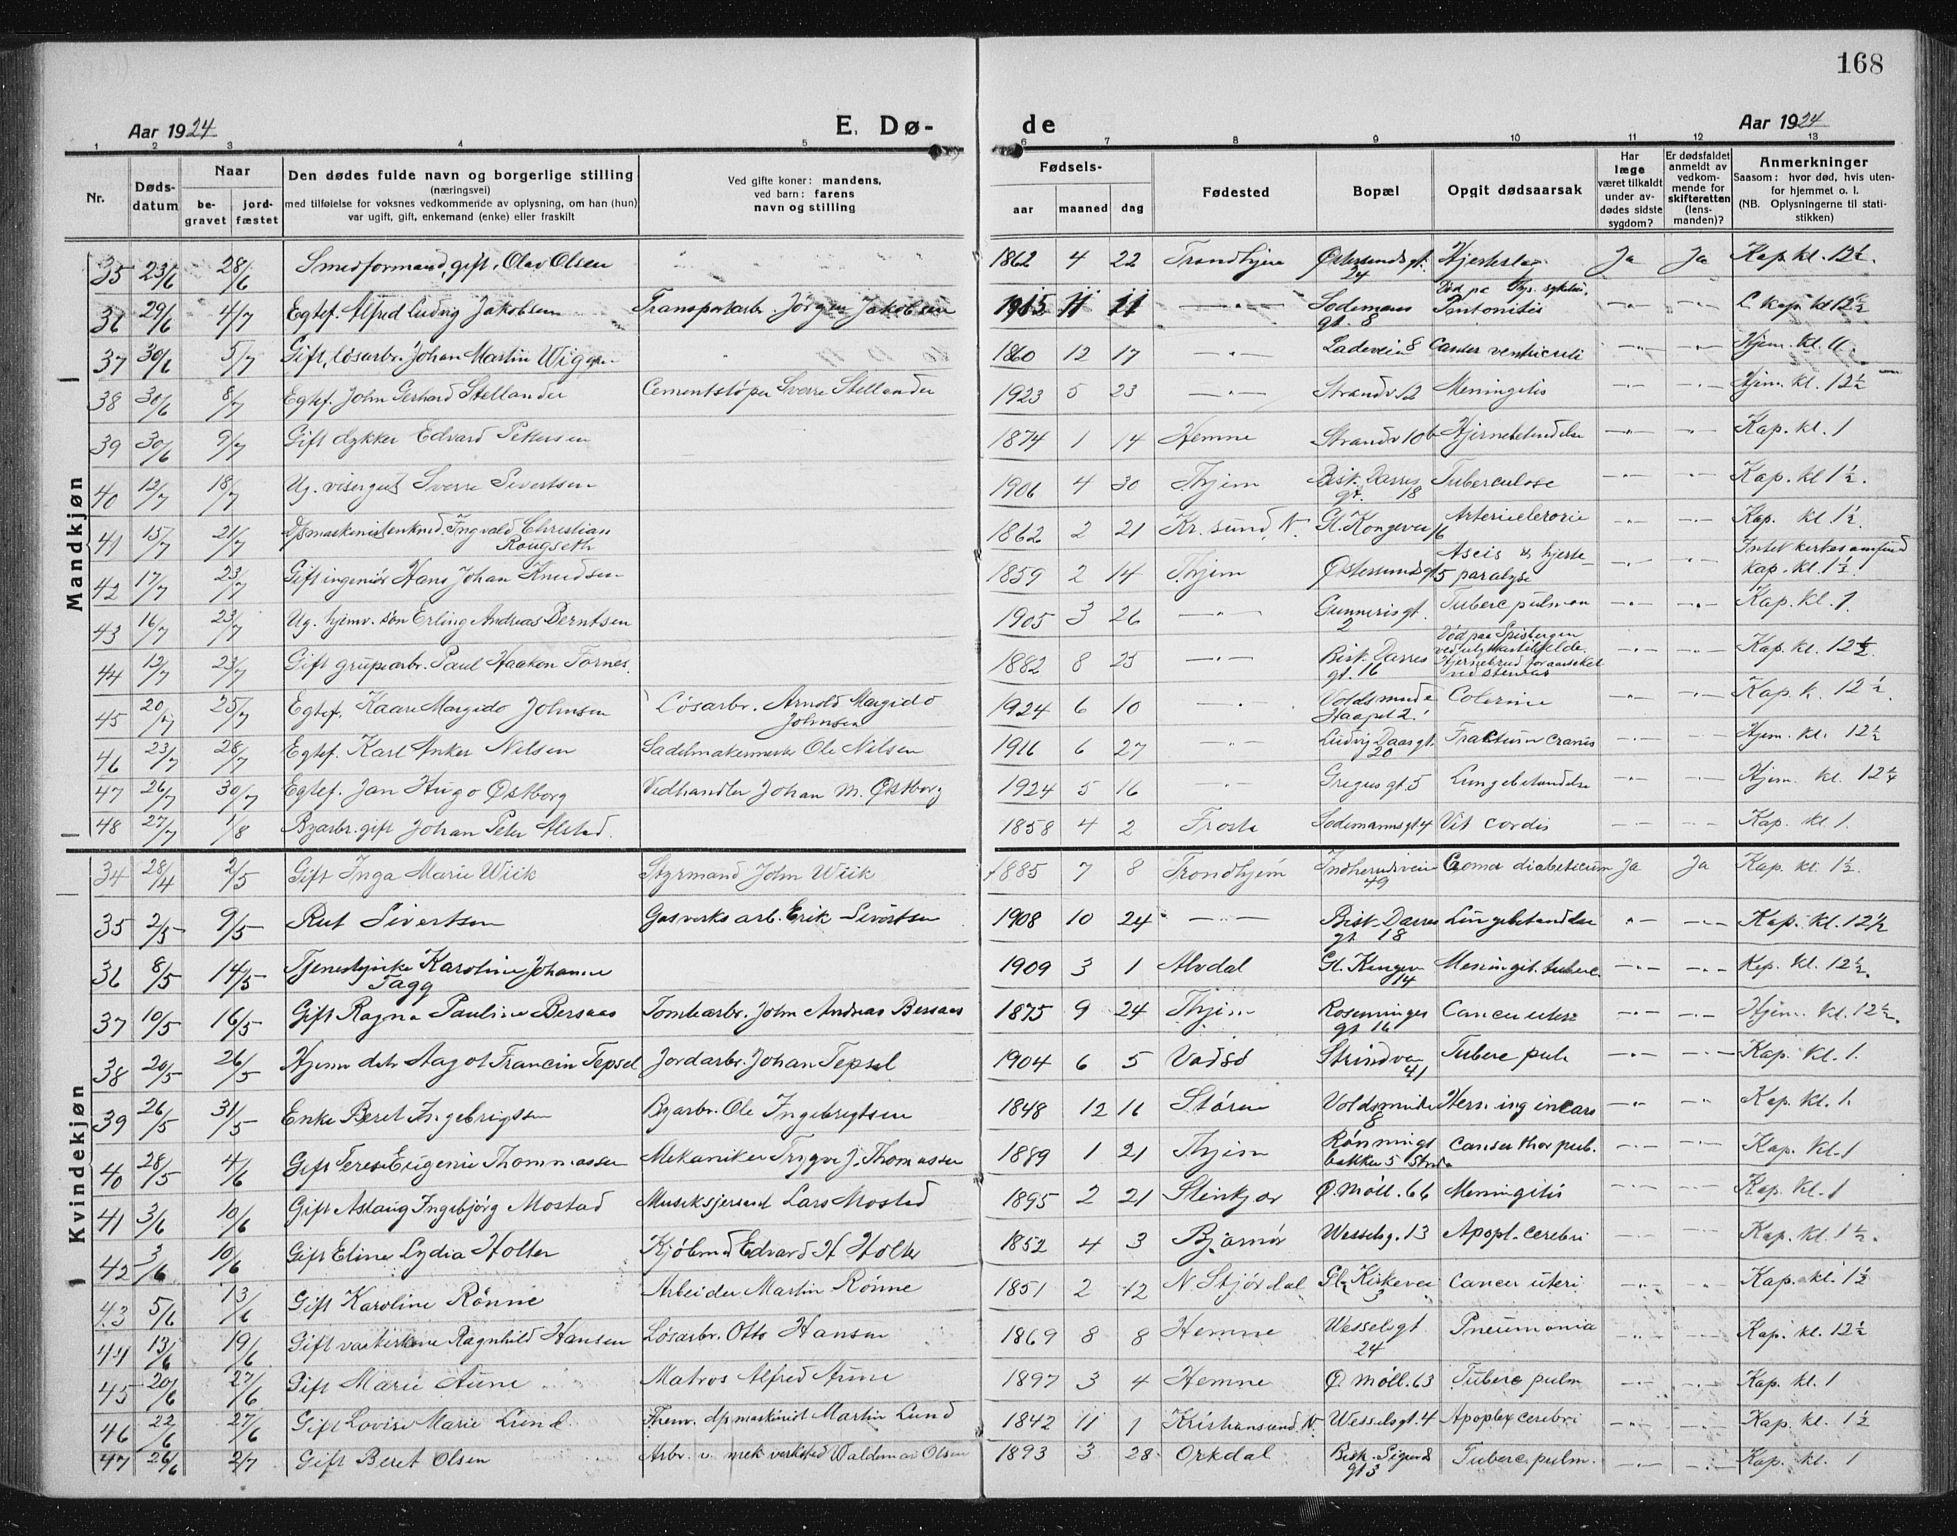 168
Aar 1924
E. Dø-
de
Aar 1924
1 2 3 4 5 6 7 8 9 10 11 12 13
Nr.
Døds-
datum
Naar
be-
gravet
jord-
fæstet
Den dødes fulde navn og borgerlige stilling
(næringsvei)
med tilføielse for voksnes vedkommende av oplysning, om han (hun)
var ugift, gift, enkemand (enke) eller fraskilt
Ved gifte koner: mandens,
ved barn: farens
navn og stilling
Fødsels-
aar
maaned
dag
Fødested
Bopæl
Opgit dødsaarsak
Har
læge
været tilkaldt
under av-
dødes sidste
sygdom?
Er dødsfaldet
anmeldt av
vedkom-
mende for
skifteretten
(lens-
manden)?
Anmerkninger
Saasom: hvor død, hvis uten-
for hjemmet o. l.
(NB. Oplysningerne til stati-
stikken)
Mandkjøn
35 23/6 28/6 Smedformand, gift, Olav Olsen 1862 4 22 Trondhjem Østersundsgt. 24 Hjerteslag Ja Ja Kap. kl. 12½.
36 29/6 4/7 Egtef. Alfred Ludvig Jakobsen Transportarbr. Jørgen Jakobsen 1915 11 11 —"— Sodemans gt. 8 —"— —"—
37 30/6 5/7 Gift, løsarbr. Johan Martin 1860 12 17 —"— Ladeveien 8 Cancer ventriculi —"— —"— Hjem. kl. 11.
38 30/6 8/7 Egtef. John Gerhard Stellander Cementstøper Sverre Stellander 1923 5 23 —"— Strandv 12 Meningitis —"— —"— Hjem. kl. 12½
39 30/6 9/7 Gift dykker Edvard Petersen 1874 1 14 Hemne Strandv 10b Hjernebetendelse —"— —"— Kap. kl. 1
40 12/7 18/7 Ug. visergut Sverre Sivertsen 1906 4 30 Thjem Bisk. Darres gt. 18 Tuberculose —"— —"— Kap. kl 1½.
41 15/7 21/7 Ingvald Christian Rougseth 1862 2 21 Kr.sund N. Gl. Kongevei 16 —"— —"— Kap. kl. 1½.
42 17/7 23/7 Gift ingeniør Hans Johan Knudsen 1859 2 14 Thjem Østersundsgt 5 hjerte-paralyse —"— —"— Intet kirkesamfund kap. kl. 1½.
43 16/7 23/7 Ug. hjemv. søn Erling Andreas Berntsen 1905 3 26 —"— Gunnerisgt. 2 Tuberc pulmon —"— —"— Kap. kl. 1.
44 12/7 23/7 Gift grupearbr. Paul Haakon Fornes. 1882 8 25 —"— Bisk. Darres gt. 16 Død paa Spisbergen ved ulykkestilfelde. —"— —"— Kap. kl. 12½.
45 20/7 25/7 Egtef. Kaare Margido Johnsen Løsarbr. Arnold Margido Johnsen 1924 6 10 —"— Voldsminde 2 Colerine —"— —"— Kap. k. 12½.
46 23/7 28/7 Egtef. Karl Anker Nilsen Sadelmakermestr Ole Nilsen 1916 6 27 —"— Ludvig Daasgt. 20 Fractum cranis —"— —"— Hjem. kl. 12½
47 26/7 30/7 Egtef. Jan Hugo Østborg Vedhandler Johan M. Østborg 1924 5 16 " Gregusgt. 5 Lungebetendelse —"— —"— Hjem. kl. 12¼
48 27/7 1/8 Byarbr. gift Johan Peter Alstad. 1858 4 2 Frosta Sodemannsgt 4 Vit cordis —"— —"— Kap. kl 1.
Kvindekjøn
34 28/4 2/5 Gift Inga Marie Wiik Styrmand John Wiik 1885 7 8 Trondhjem Indherredsveien 49 Coma diabeticum Ja Ja Kap. kl. 1½.
35 2/5 9/5 Rut Sivertsen Gasverksarb. Erik Sivertsen 1908 10 24 —"— Bisk. Darres gt. 18 Lungebetendelse " —"— Kap. kl. 12½
36 8/5 14/5 Tjenestpike Karoline Johanne Fagg 1909 3 1 Alvdal Gl. Kongev 14 Meningit. tuberc. —"— —"— Kap. kl. 12½.
37 10/5 16/5 Gift Ragna Pauline Bersaas Tomtearbr. John Andreas Bersaas 1875 9 24 Thjem Rosenninges gt. 16 Cancer uteri —"— —"— Hjem. kl. 12½.
38 20/5 26/5 Hjemv datr Aagot Francin Tepsel Jordarbr. Johan Tepsel 1904 6 5 Vadsø Strindvn 41 Tuberc pulm —"— —"— Kap. kl. 1.
39 26/5 31/5 Enke Beret Ingebrigtsen Byarbr. Ole Ingebrigtsen 1848 12 16 Støren Voldsminde 8 Hern. ing incars —"— —"— Kap. kl. 1.
40 28/5 4/6 Gift Terese Eugenie Thommassen Mekaniker Trygve J. Thomassen 1889 1 21 Thjem Rønnings bakken 5 —"— —"— Kap. kl. 1
41 3/6 10/6 Gift Aslaug Ingebjørg Mostad Musiksjersant Lars Mostad 1895 2 21 Stenkjær Ø. Møll. 66 Meningitis —"— —"— Kap. kl. 1
42 3/6 10/6 Gift Eline Lydia Holter Kjøbmd Edvard H Holter 1852 4 3 Bjørnør Wesselsg. 13 Apopl. cerebri —"— Kap. kl. 1½.
43 5/6 13/6 Gift Karoline Rønne Arbeider Martin Rønne 1851 2 12 N. Stjørdal Gl. Kirkevei 3 Cancer uteri —"— —"— Kap. kl. 1½
44 13/6 19/6 Gift vaskerkone Ragnhild Hansen Løsarbr. Otto Hansen 1869 8 8 Hemne Wesselsgt 24 Pneumonia —"— —"— Kap. kl. 12½
45 20/6 27/6 Gift Marie Aune Matros Alfred Aune 1897 3 4 Hemne Ø. Møll. 63 Tuberc pulm —"— —"— Kap. kl. 1
46 22/6 27/6 Gift Lovise Marie Lund Frem. dpmaskinist Martin Lund 1842 11 1 Kristiansund N. Wesselsgt. 4 Apoplex cerebri —"— —"— Kap. kl. 1½
47 26/6 2/7 Gift Beret Olsen Arbr. v. mek verksted Waldemar Olsen 1893 3 28 Orkdal Bisk. Sigurds gt 3 Tuberc. pulm. —"— —"— Kap. kl. 1